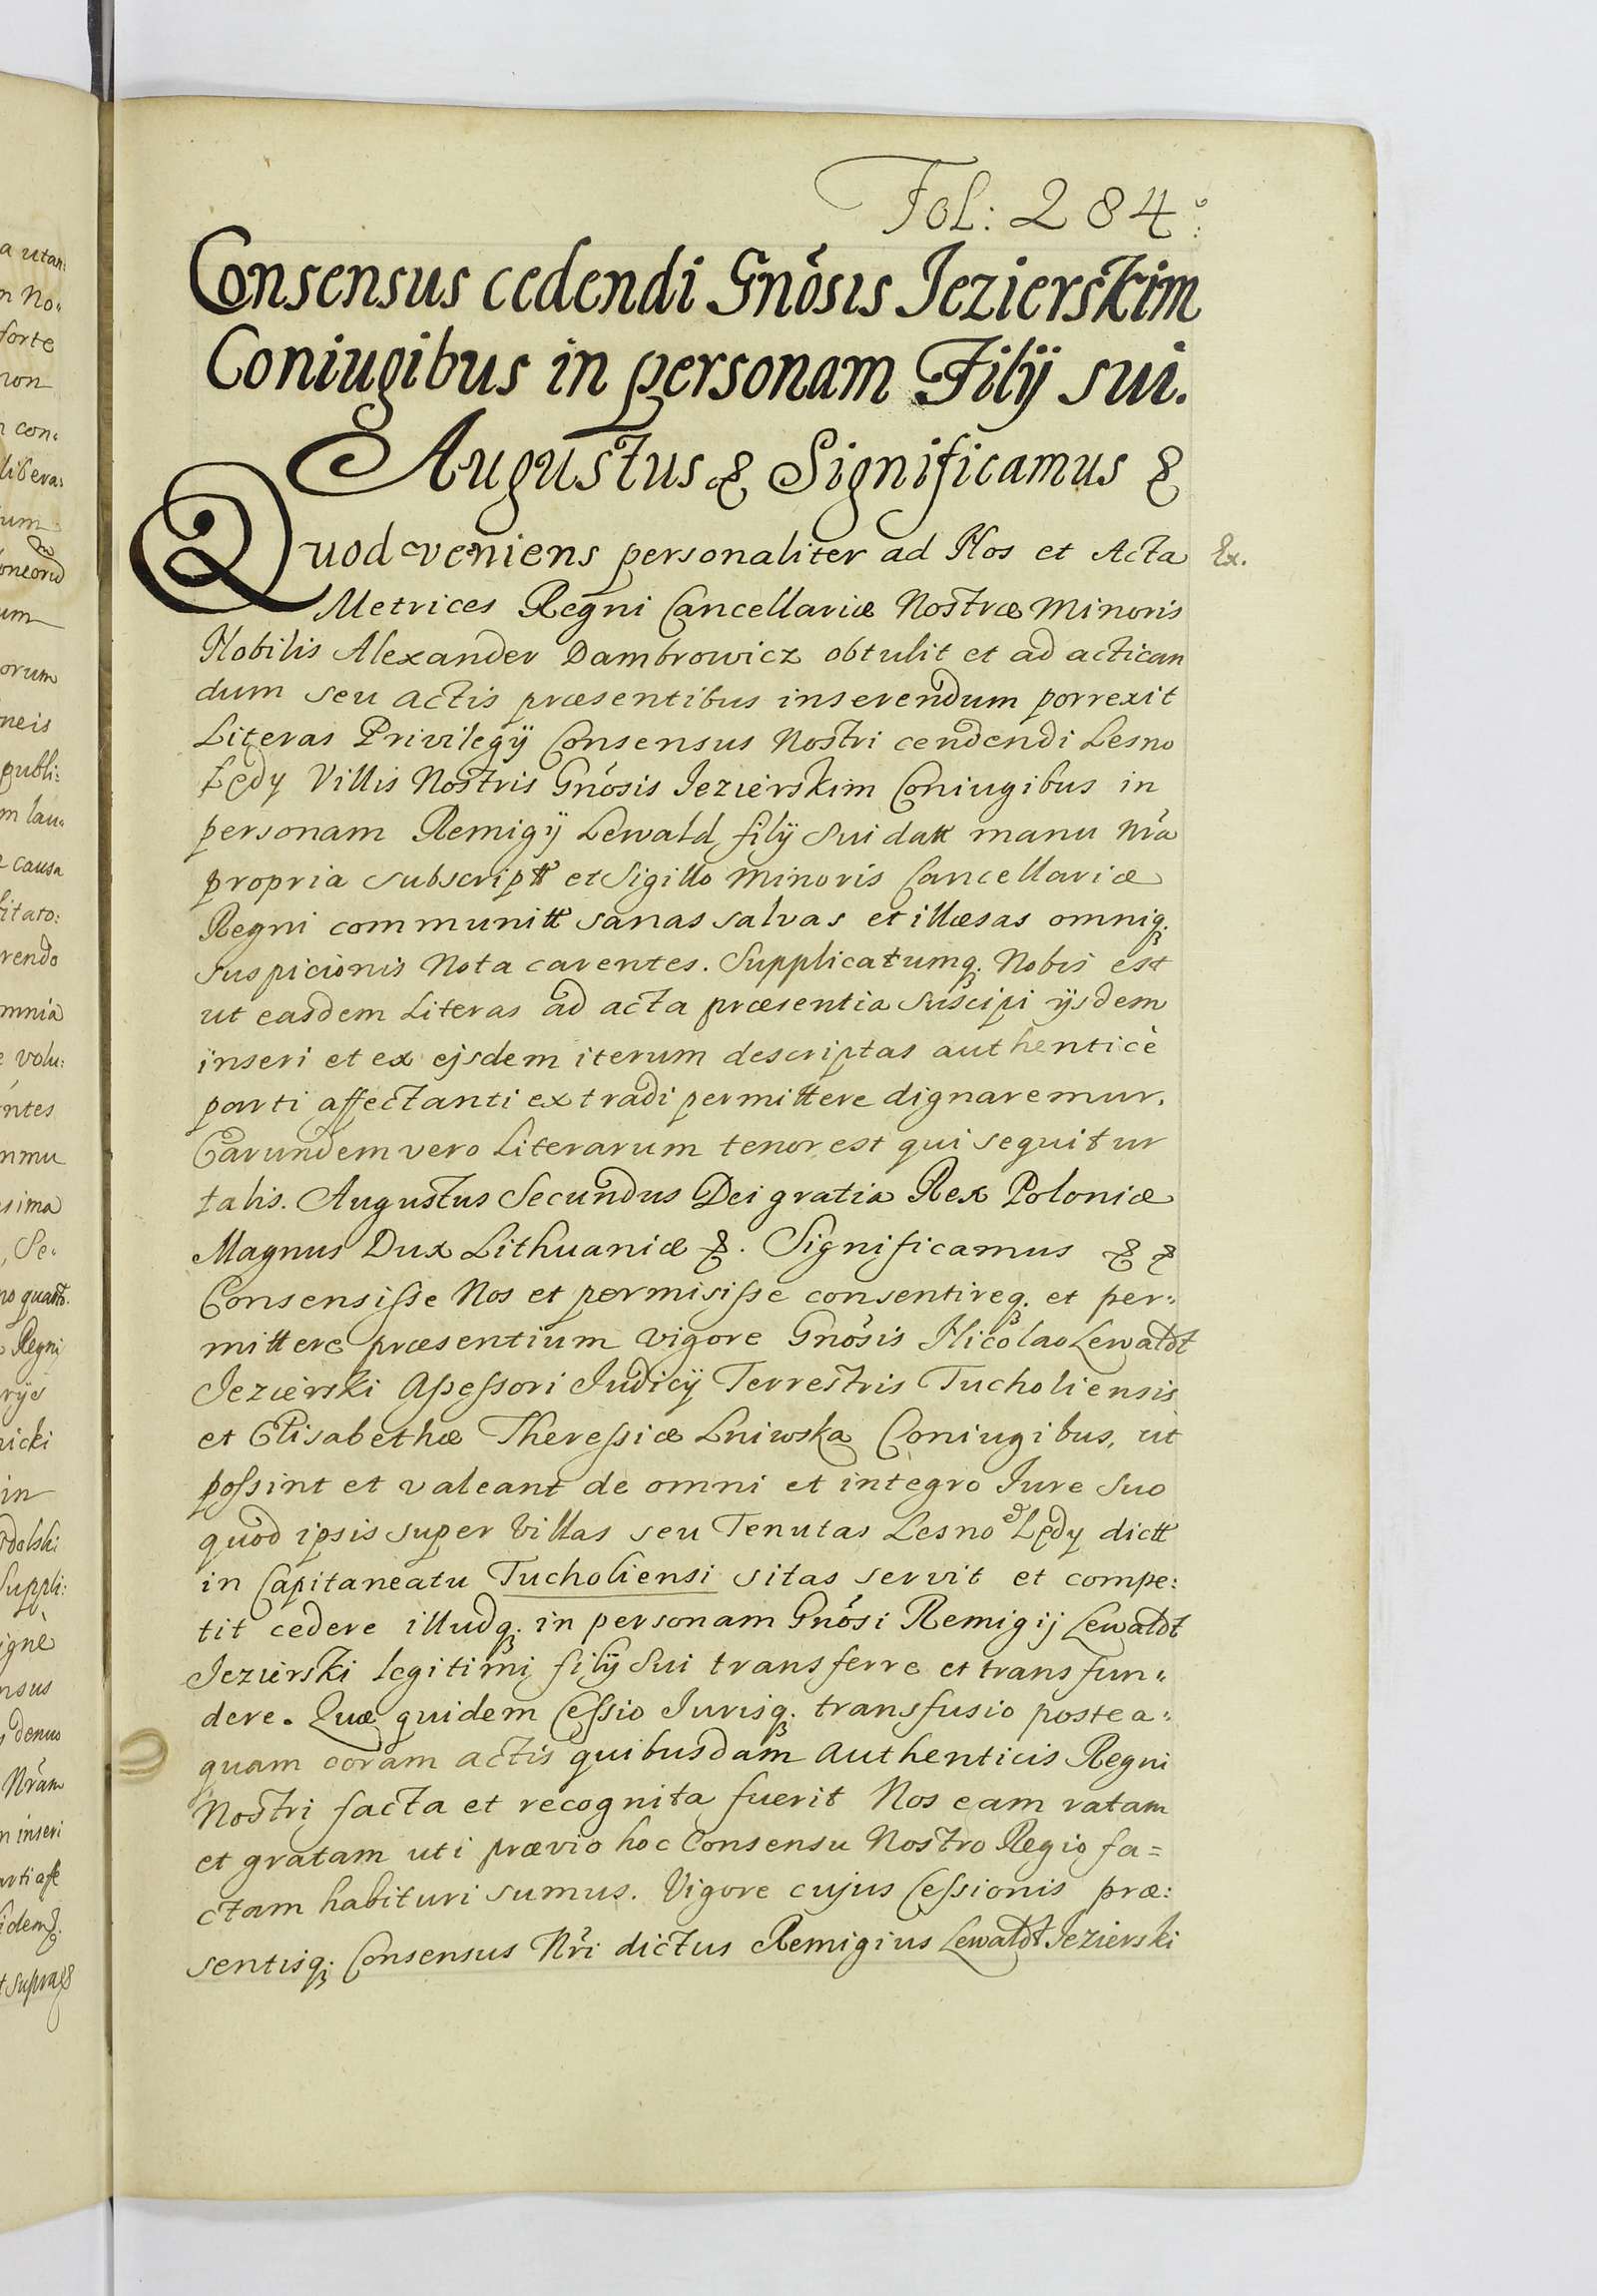 Fol: 284.
Consensus cedendi Gnosis Jezierskim
Coniugibus in personam Filij sui.
Augustus & Significamus &
Quod veniens personaliter ad Nos et Acta Ex.
Metrices Regni Cancellariæ Nostræ Minoris
Nobilis Alexander Dambrowicz obtulit et ad actican
dum seu actis præsentibus inserendum porrexit
Literas Privilegij Consensus Nostri cendendi Lesno
Lędy Villis Nostris Gnosis Jezierskim Coniugibus in
personam Remigij Lewald filij sui datt manu nra
propria subscriptt et Sigillo minoris Cancellariæ
Regni communitt sanas salvas et illæsas omniq.
suspicionis nota carentes. Supplicatumq. Nobis est
ut easdem Literas ad acta præsentia suscipi ijsdem
inseri et ex ejsdem iterum descriptas authenticè
parti affectanti extradi permittere dignaremur.
Earundem vero Literarum tenor est qui sequitur
talis. Augustus Secundus Dei gratia Rex Poloniæ
Magnus Dux Lithuaniæ &. Significamus & &
Consensisse Nos et permisisse consentireq. et per:
mittere præsentium vigore Gnosis Nicolao Lewaldt
Jezierski Assessori Judicij Terrestris Tucholiensis
et Elisabethæ Theressiæ Lniwska Coniugibus, ut
possint et valeant de omni et integro Jure suo
quod ipsis super Villas seu Tenutas Lesno et Lędy dictt
in Capitaneatu Tucholiensi sitas servit et compe:
tit cedere illudq. in personam Gnosi Remigij Lewaldt
Jezierski legitimi filij sui transferre et transfun:
dere. Quæ quidem Cessio Jurisq. transfusio postea:
quam coram actis quibusdam authenticis Regni
Nostri facta et recognita fuerit Nos eam ratam
et gratam uti prævio hoc Consensu Nostro Regio fa=
ctam habituri sumus. Vigore cujus Cessionis præ:
sentisq. Consensus Nri dictus Remigius Lewaldt Jezierski